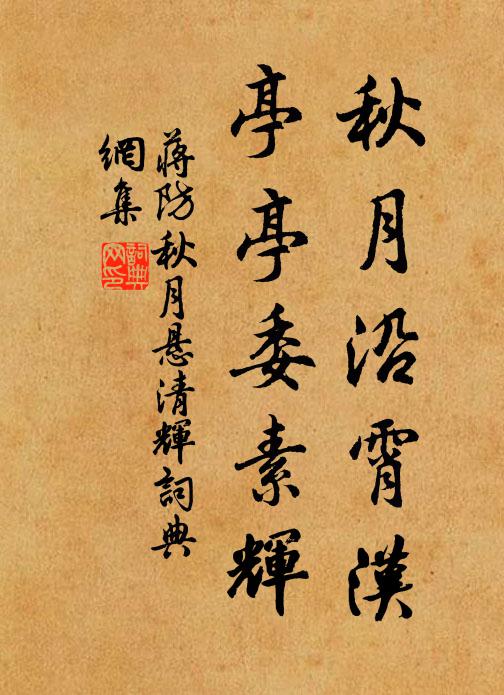 秋月沿霄漢
亭亭委素輝
蔣防秋月悬清輝詞典
網集
詞典
网印